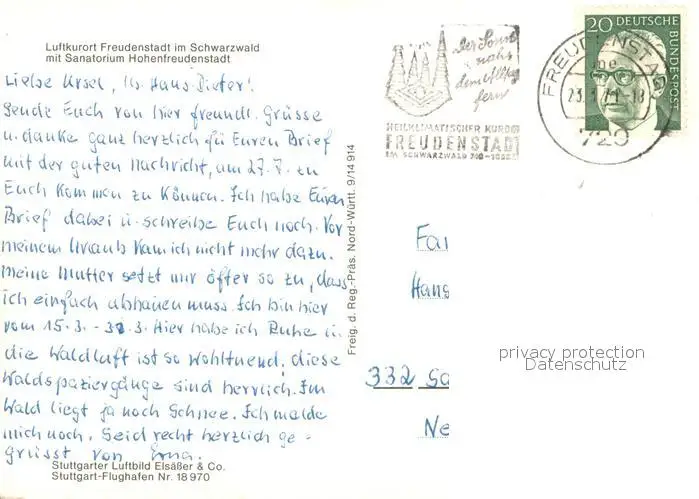 Luftkurort Freudenstadt im Schwarzwald
mit Sanatorium Hohenfreudenstadt
Liebe Ursel, lb. Hans-Dieter!
Sende Euch von hier freundl. Grüsse
u. danke ganz herzlich für Euren Brief
mit der guten Nachricht, am 27.7. zu
Euch kommen zu können. Ich habe Euren
Brief dabei u. schreibe Euch noch. Vor
meinem Urlaub kam ich nicht mehr dazu.
Meine Mutter setzt mir öfter so zu, dass
ich einfach abhauen muss. Ich bin hier
vom 15.3. - 31.3. Hier habe ich Ruhe u.
die Waldluft ist so wohltuend, diese
Waldspaziergänge sind herrlich. Im
Wald liegt ja noch Schnee. Ich melde
mich noch. Seid recht herzlich ge-
grüsst von Erna.
Stuttgarter Luftbild Elsäßer & Co.
Stuttgart-Flughafen Nr. 18970
Freig. d. Reg.-Präs. Nord-Württ. 9/14914
der Sonne
nah
dem Alltag
fern
HEILKLIMATISCHER KURORT
FREUDENSTADT
IM SCHWARZWALD
FREUDENSTADT
23.3.71-18
729
20 DEUTSCHE
BUNDESPOST
Fa
Hans
332 Sa
Ne
privacy protection
Datenschutz